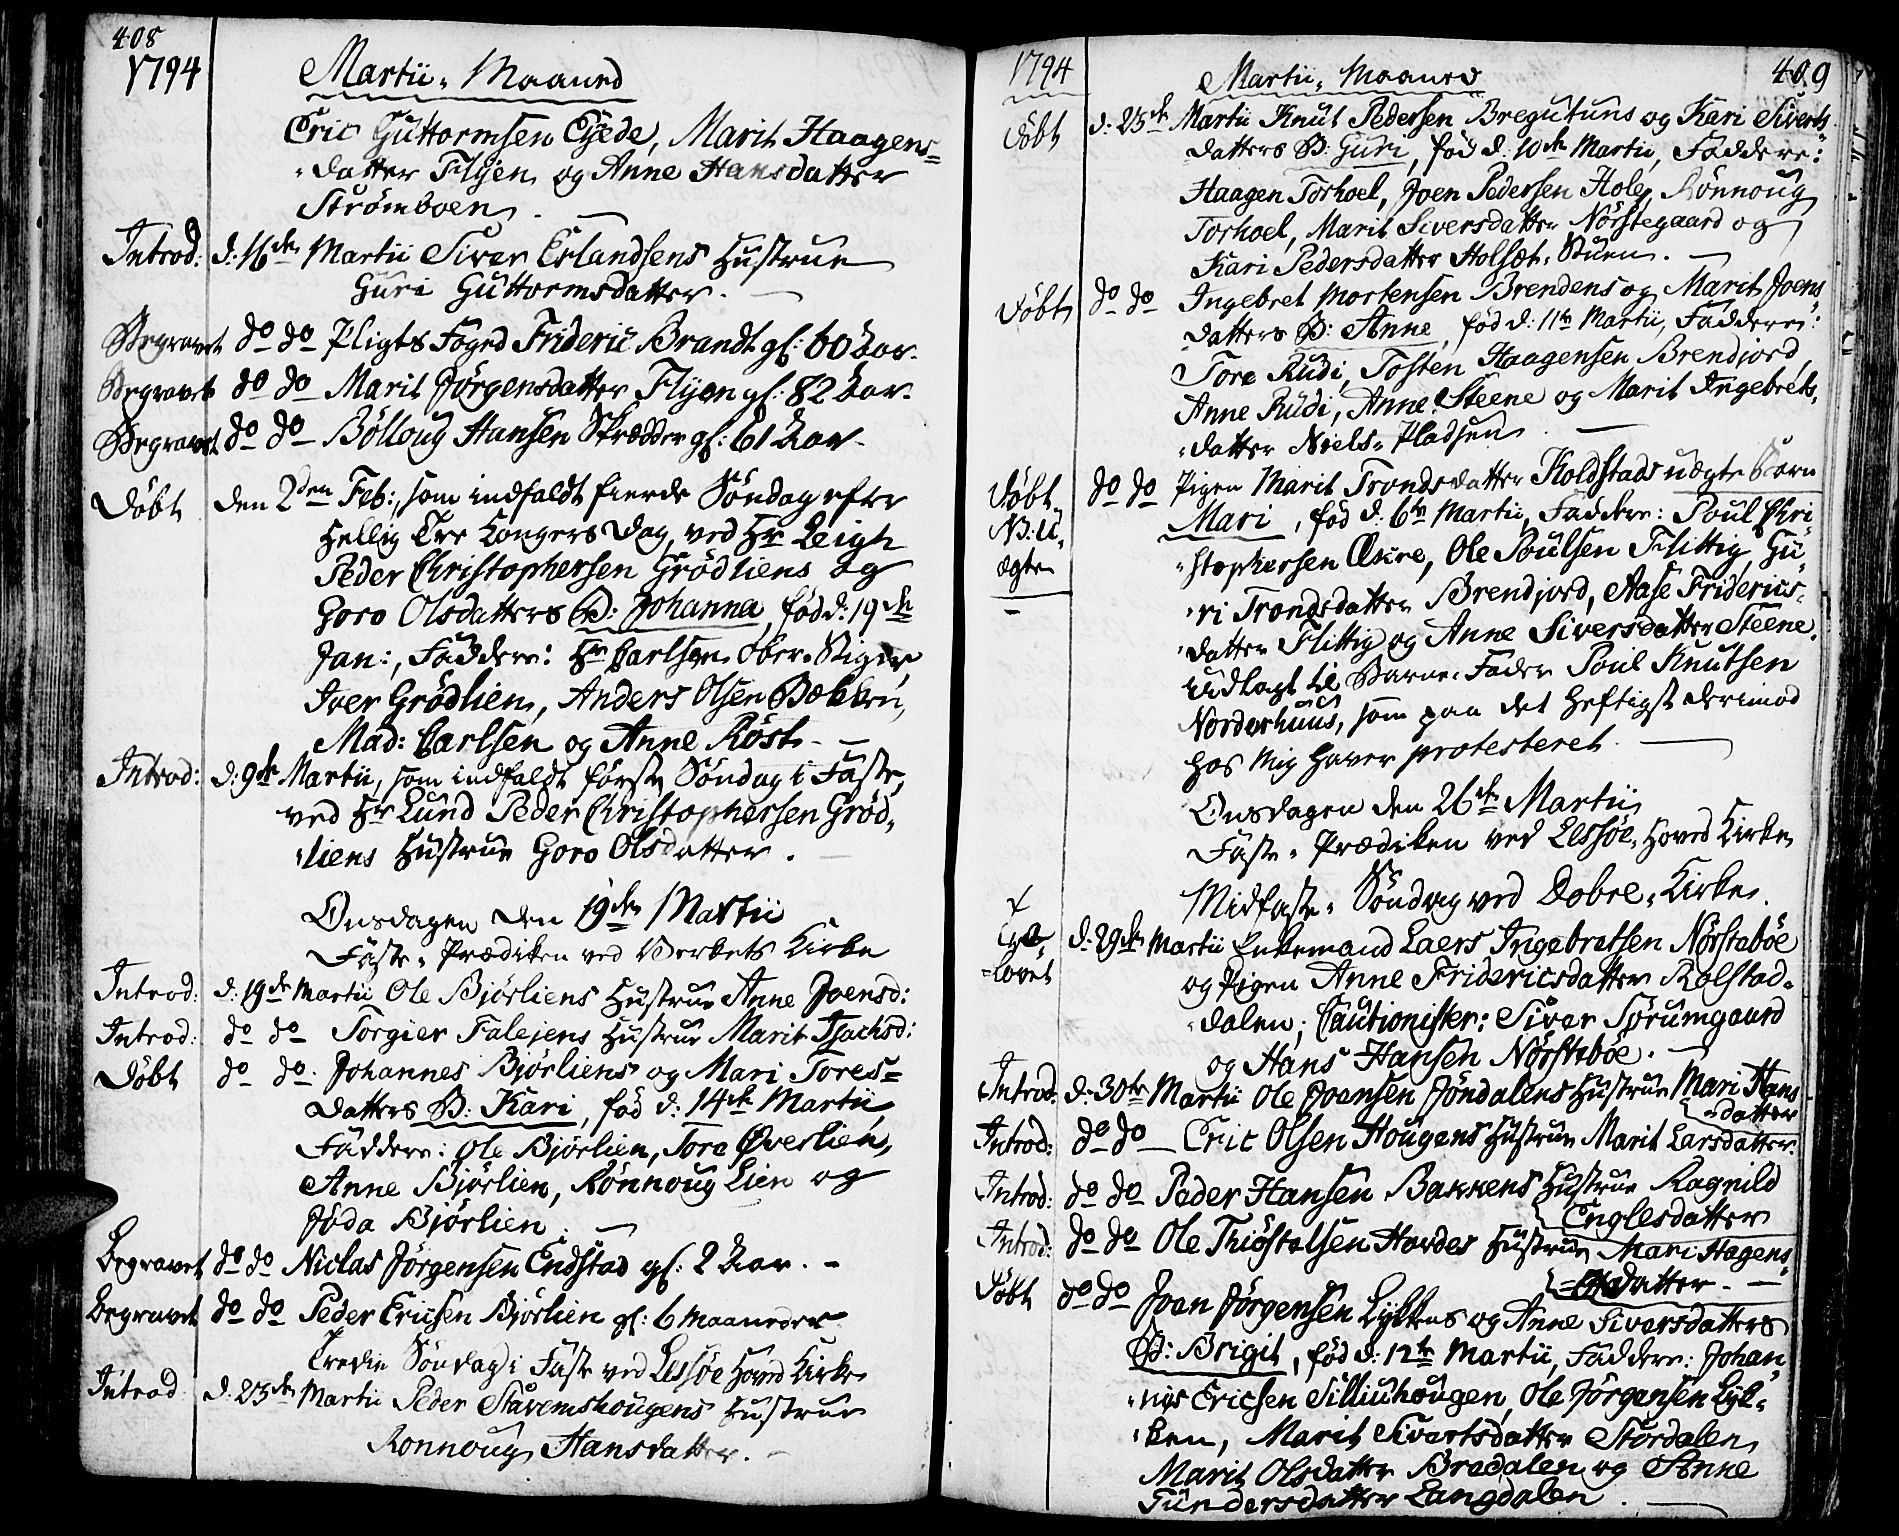 408
1794
Martii-Maaned
Eric Guttormsen Egede, Marit Haagens=
-datter Flyen og Anne Hansdatter
Strømboen.
Introd: d: 16de Martii Siver Erlandsens Hustrue
Guri Guttormsdatter.
Begravet do do Pligts Foged Frideric Brandt gl: 60 Aar.
Begravet do do Marit Jørgensdatter Flyen gl: 82 Aar.
Begravet do do Bølloug Hansen Skrædder gl: 61 Aar.
Døbt den 2den Feb:, som indfaldt fierde Søndag efter
Hellig Tre Kongers Dag, ved Hr Leigh
Peder Christophersen Grødliens og
Goro Olsdatters B: Johanna, fød d: 19de
Jan:, Faddere: Hr Carlsen Ober-Stiger,
Iver Grødlien, Anders Olsen Bækken,
Mad: Carlsen og Anne Røst.
Introd: d: 9de Martii, som indfaldt første Søndag i Faste,
ved Hr Lund Peder Christophersen Grød,
-liens Hustrue Goro Olsdatter.
Onsdagen den 19den Martii
Faste-Prædiken ved Verkets Kirke
Introd: d: 19de Martii Ole Bjørliens Hustrue Anne Joensd:
Introd: do do Torgier Falejens Hustrue Marit Isachsd:
Døbt do do. Johannes Bjørliens og Mari Tores=
datters B: Kari, fød d: 14de Martii
Faddere: Ole Bjørlien, Tore Øverlien,
Anne Bjørlien, Rønnoug Lien og
Jøda Bjørlien.
Begravet do do Niclas Jørgensen Endstad gl: 2 Aar.
Begravet do do Peder Ericsen Bjørlien gl: 6 Maaneder
Tredie Søndag i Faste ved Lessøe Hoved Kirke
Introd d: 23de Martii Peder Stavemshougens Hustrue
Rønnoug Hansdatter.
1794
Martii-Maaned
409
Døbt d: 23de Martii Knut Pedersen Bregutuns og Kari Siverts
datters B: Guri, fød d: 10de Martii, Faddere:
Haagen Torhoel, Joen Pedersen Hole, Rønnoug
Torhoel, Marit Siversdatter Nørstegaard og
Kari Pedersdatter Holsæt-Stuen.
Døbt do do Ingebret Mortensen Brendens og Marit Joens
datters B: Anne, fød d: 11te Martii, Faddere:
Tore Rudi, Tosten Haagensen Brendjord,
Anne Rudi, Anne Steene og Marit Ingebrets,
-datter Niels-Pladsen
Døbt do do Pigen Marit Trondsdatter Koldstads uægte Barn
N:B: U-
ægte
Mari, fød d: 6te Martii, Faddere: Poul Chri
-stophersen Økre, Ole Poulsen Flittig, Gu
-ri Trondsdatter Brendjord, Aase Friderics-
-datter Flittig og Anne Siversdatter Steene.
Udlagt til Barne-Fader Poul Knutsen
Norderhuus, som paa det Heftigst derimod
hos Mig haver protesteret.
Onsdagen den 26de Martii
Faste-Prædiken ved Lessøe-Hoved Kirke
Midfaste-Søndag ved Dobre-Kirke.
x
Tro-
=lovet
d: 29de Martii Enkemand Laers Ingebretsen Nørstebøe
og Pigen Anne Fridericsdatter Kolstad-
-dalen, Cautionister: Siver Sørumgaard
og Hans Hansen Nørstebøe.
Introd: d: 30te Martii Ole Joensen Jøndalens Hustrue Mari Hans
-datter
Introd: do do Eric Olsen Hougens Hustrue Marit Larsdatter.
Introd: do do Peder Hansen Bakkens Hustrue Ragnild
Englesdatter
Introd: do do Ole Thiøstelsen Hordes Hustrue Mari Hagens
=datter.
Døbt do do Joen Jørgensen Lykkens og Anne Siversdatters
B: Brigit, fød d: 12te Martii, Faddere: Johan
-nes Ericsen Silliuhougen, Ole Jørgensen Lyk-
-ken, Marit Sivertsdatter Stordalen,
Marit Olsdatter Bredalen og Anne
Gundersdatter Langdalen.